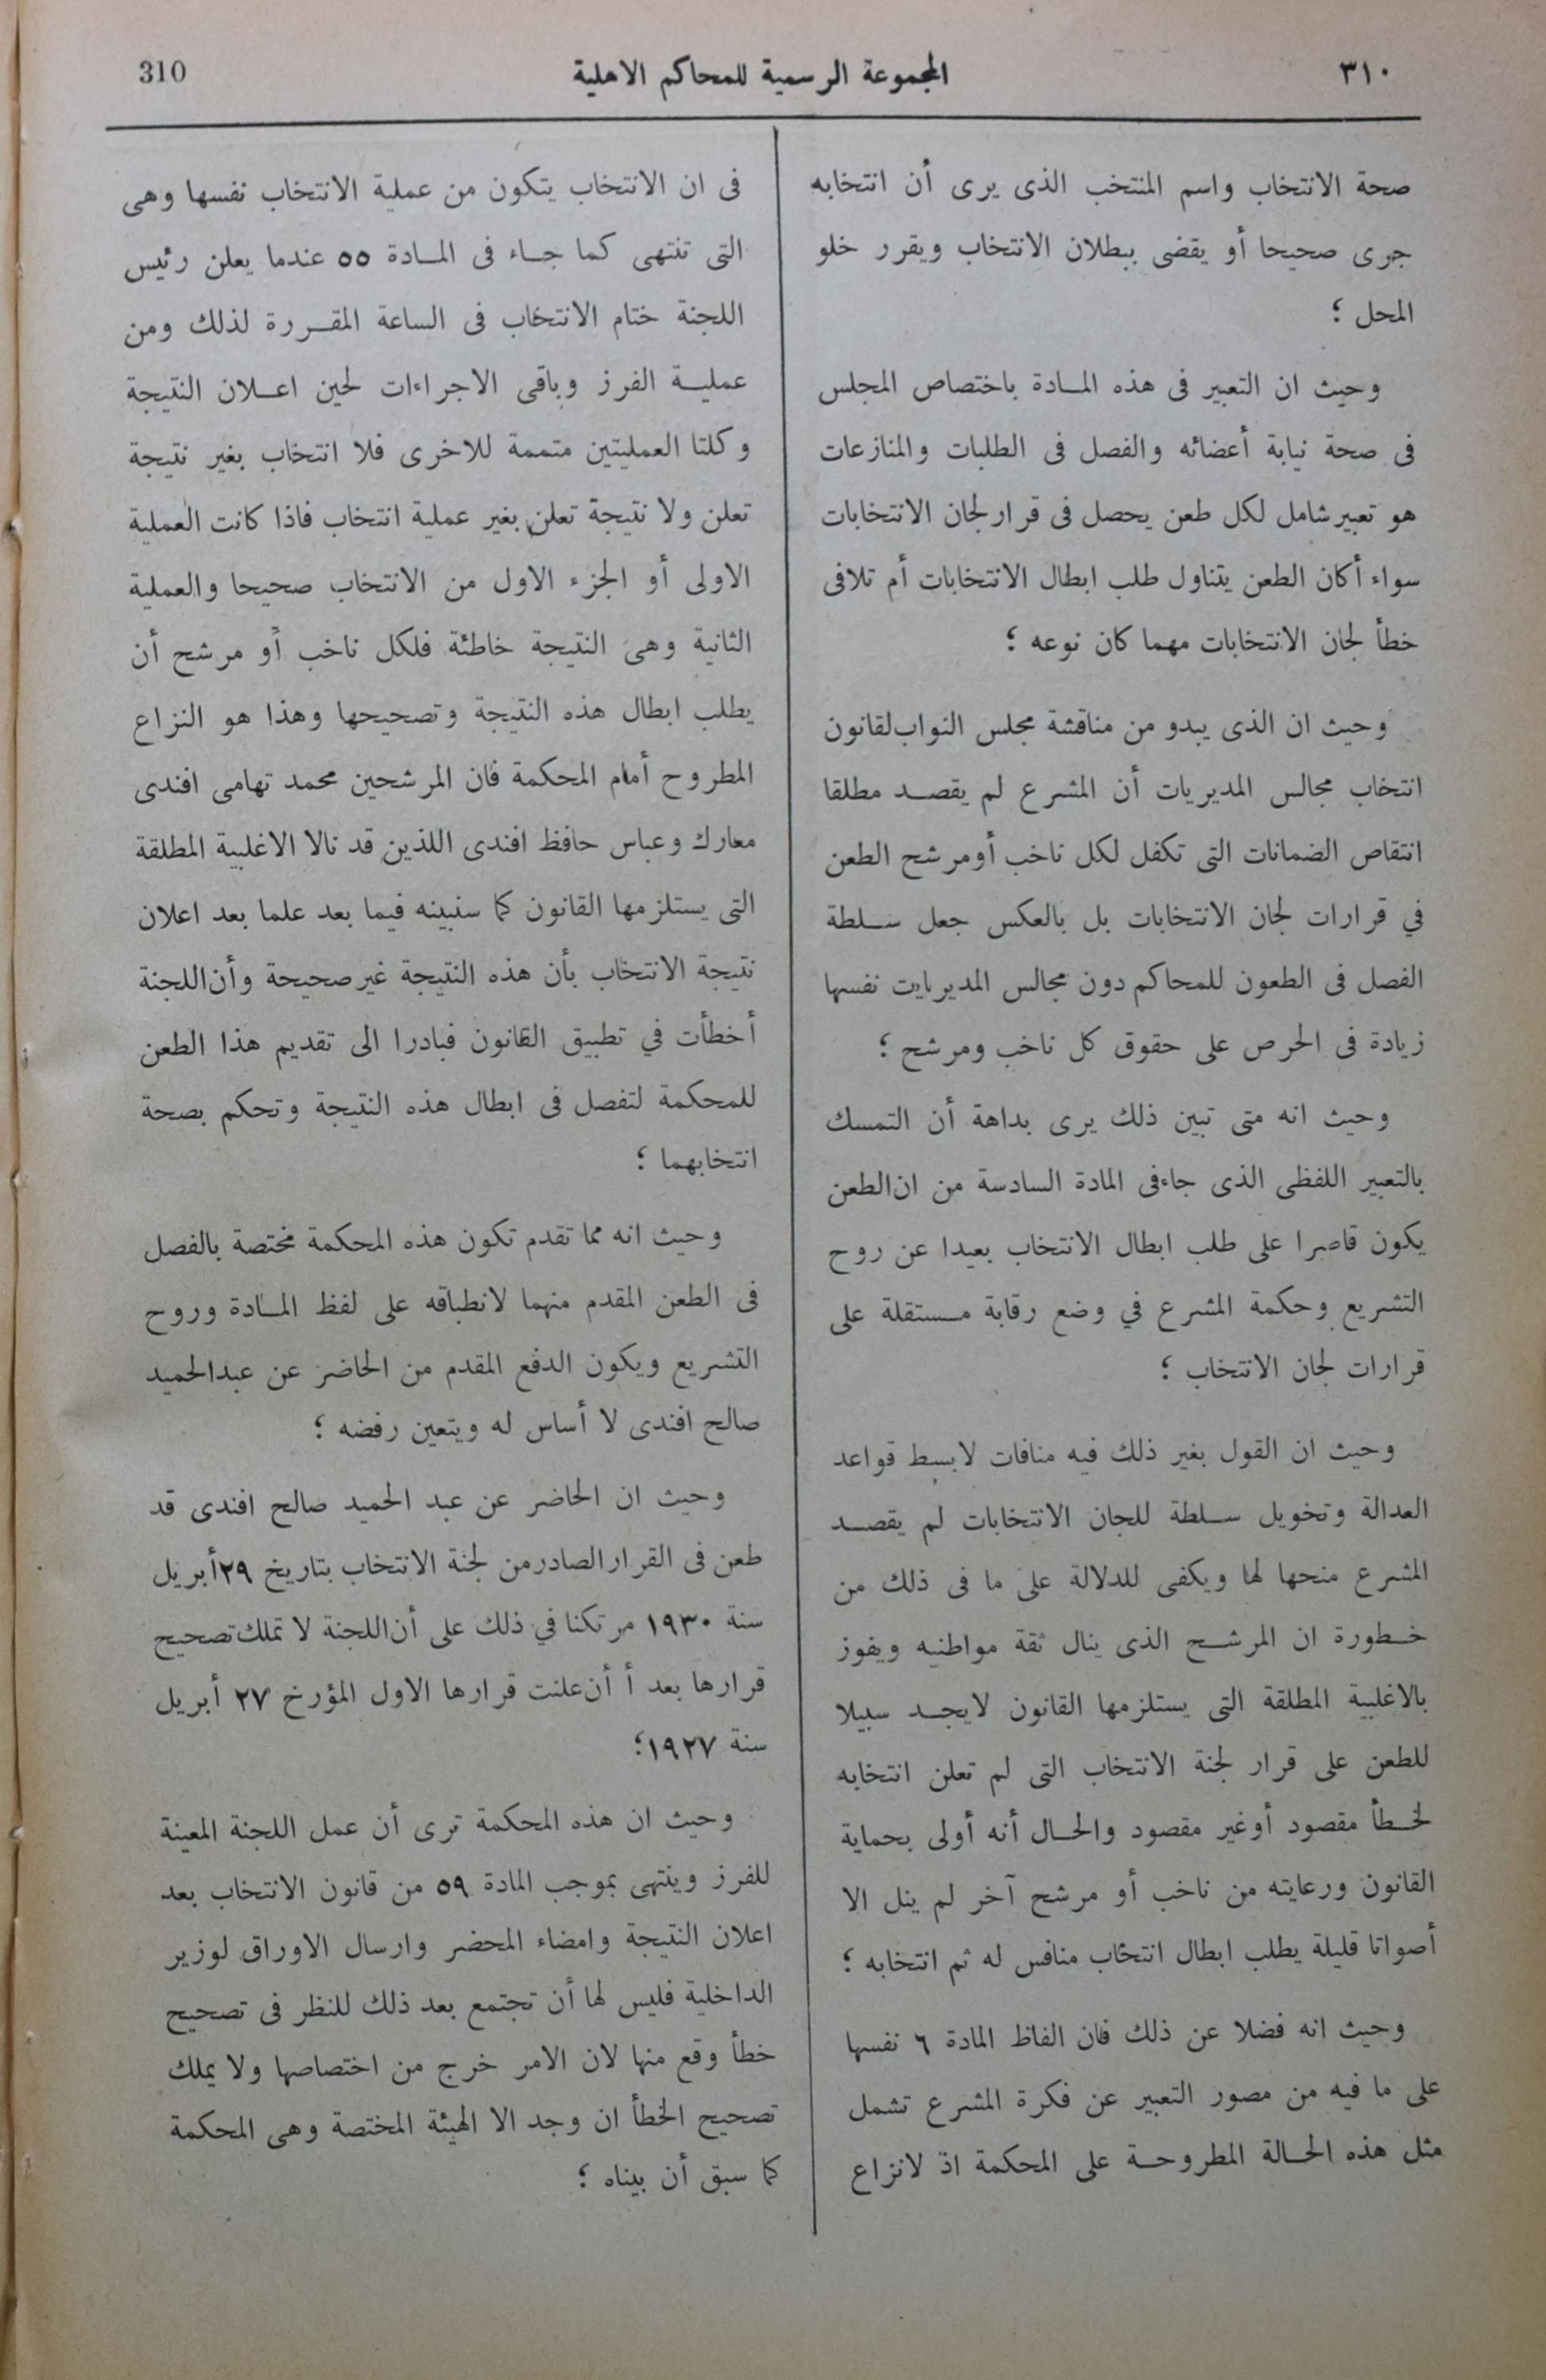 ٣١٠
المجموعة الرسمية للمحاكم الاهلية
310
صحة الانتخاب واسم المنتخب الذى يرى أن انتخابه
جرى صحيحا أو يقضى ببطلان الانتخاب ويقرر خلو
المحل ؛
وحيث ان التعبير فى هذه المـادة باختصاص المجلس
فى صحة نيابة أعضائه والفصل فى الطلبات والمنازعات
هو تعبير شامل لكل طعن يحصل فى قرار لجان الانتخابات
سواء أكان الطعن يتناول طلب ابطال الانتخابات أم تلافى
خطأ لجان الانتخابات مهما كان نوعه ؛
وحيث ان الذى يبدو من مناقشة مجلس النواب لقانون
انتخاب مجالس المديريات أن المشرع لم يقصـد مطلقا
انتقاص الضمانات التى تكفل لكل ناخب أو مرشح الطعن
في قرارات لجان الانتخابات بل بالعكس جعل سـلطة
الفصل فى الطعون للمحاكم دون مجالس المديريات نفسها
زيادة فى الحرص على حقوق كل ناخب ومرشح ؛
وحيث انه متى تبين ذلك يرى بداهة أن التمسك
بالتعبير اللفظى الذى جاء فى المادة السادسة من ان الطعن
يكون قاصرا على طلب ابطال الانتخاب بعيدا عن روح
التشريع وحكمة المشرع في وضع رقابة مـستقلة على
قرارات لجان الانتخاب ؛
وحيث ان القول بغير ذلك فيه منافات لابسط قواعد
العدالة وتخويل سـلطة للجان الانتخابات لم يقصـد
المشرع منحها لها ويكفى للدلالة على ما فى ذلك من
خـطورة ان المرشـح الذى ينال ثقة مواطنيه ويفوز
بالاغلبية المطلقة التى يستلزمها القانون لايجـد سبيلا
للطعن على قرار لجنة الانتخاب التى لم تعلن انتخابه
لخـطأ مقصود أو غير مقصود والحـال أنه أولى بحماية
القانون ورعايته من ناخب أو مرشح آخر لم ينل الا
أصواتا قليلة يطلب ابطال انتخاب منافس له ثم انتخابه ؛
وحيث انه فضلا عن ذلك فان الفاظ المادة ٦ نفسها
على ما فيه من مصور التعبير عن فكرة المشرع تشمل
مثل هذه الحـالة المطروحـة على المحكمة اذ لانزاع
فى ان الانتخاب يتكون من عملية الانتخاب نفسها وهى
التى تنتهى كما جـاء فى المـادة ٥٥ عندما يعلن رئيس
اللجنة ختام الانتخاب فى الساعة المقـررة لذلك ومن
عمليـة الفرز وباقى الاجراءات لحين اعـلان النتيجة
وكلتا العمليتين متممة للاخرى فلا انتخاب بغير نتيجة
تعلن ولا نتيجة تعلن بغير عملية انتخاب فاذا كانت العملية
الاولى أو الجزء الاول من الانتخاب صحيحا والعملية
الثانية وهى النتيجة خاطئة فلكل ناخب أو مرشح أن
يطلب ابطال هذه النتيجة وتصحيحها وهذا هو النزاع
المطروح أمام المحكمة فان المرشحين محمد تهامى افندى
معارك وعباس حافظ افندى اللذين قد نالا الاغلبية المطلقة
التى يستلزمها القانون كما سنبينه فيما بعد علما بعد اعلان
نتيجة الانتخاب بأن هذه النتيجة غير صحيحة وأن اللجنة
أخطأت في تطبيق القانون فبادرا الى تقديم هذا الطعن
للمحكمة لتفصل فى ابطال هذه النتيجة وتحكم بصحة
انتخابهما ؛
وحيث انه مما تقدم تكون هذه المحكمة مختصة بالفصل
فى الطعن المقدم منهما لانطباقه على لفظ المـادة وروح
التشريع ويكون الدفع المقدم من الحاضر عن عبدالحميد
صالح افندى لا أساس له ويتعين رفضه ؛
وحيث ان الحاضر عن عبد الحميد صالح افندى قد
طعن فى القرار الصادر من لجنة الانتخاب بتاريخ ٢٩ أبريل
سنة ١٩٣٠ مرتكنا في ذلك على أن اللجنة لا تملك تصحيح
قرارها بعد أ أن علنت قرارها الاول المؤرخ ٢٧ أبريل
سنة ١٩٢٧؛
وحيث ان هذه المحكمة ترى أن عمل اللجنة المعينة
للفرز وينتهى بموجب المادة ٥٩ من قانون الانتخاب بعد
اعلان النتيجة وامضاء المحضر وارسال الاوراق لوزير
الداخلية فليس لها أن تجتمع بعد ذلك للنظر فى تصحيح
خطأ وقع منها لان الامر خرج من اختصاصها ولا يملك
تصحيح الخطأ ان وجد الا الهيئة المختصة وهى المحكمة
كما سبق أن بيناه ؛